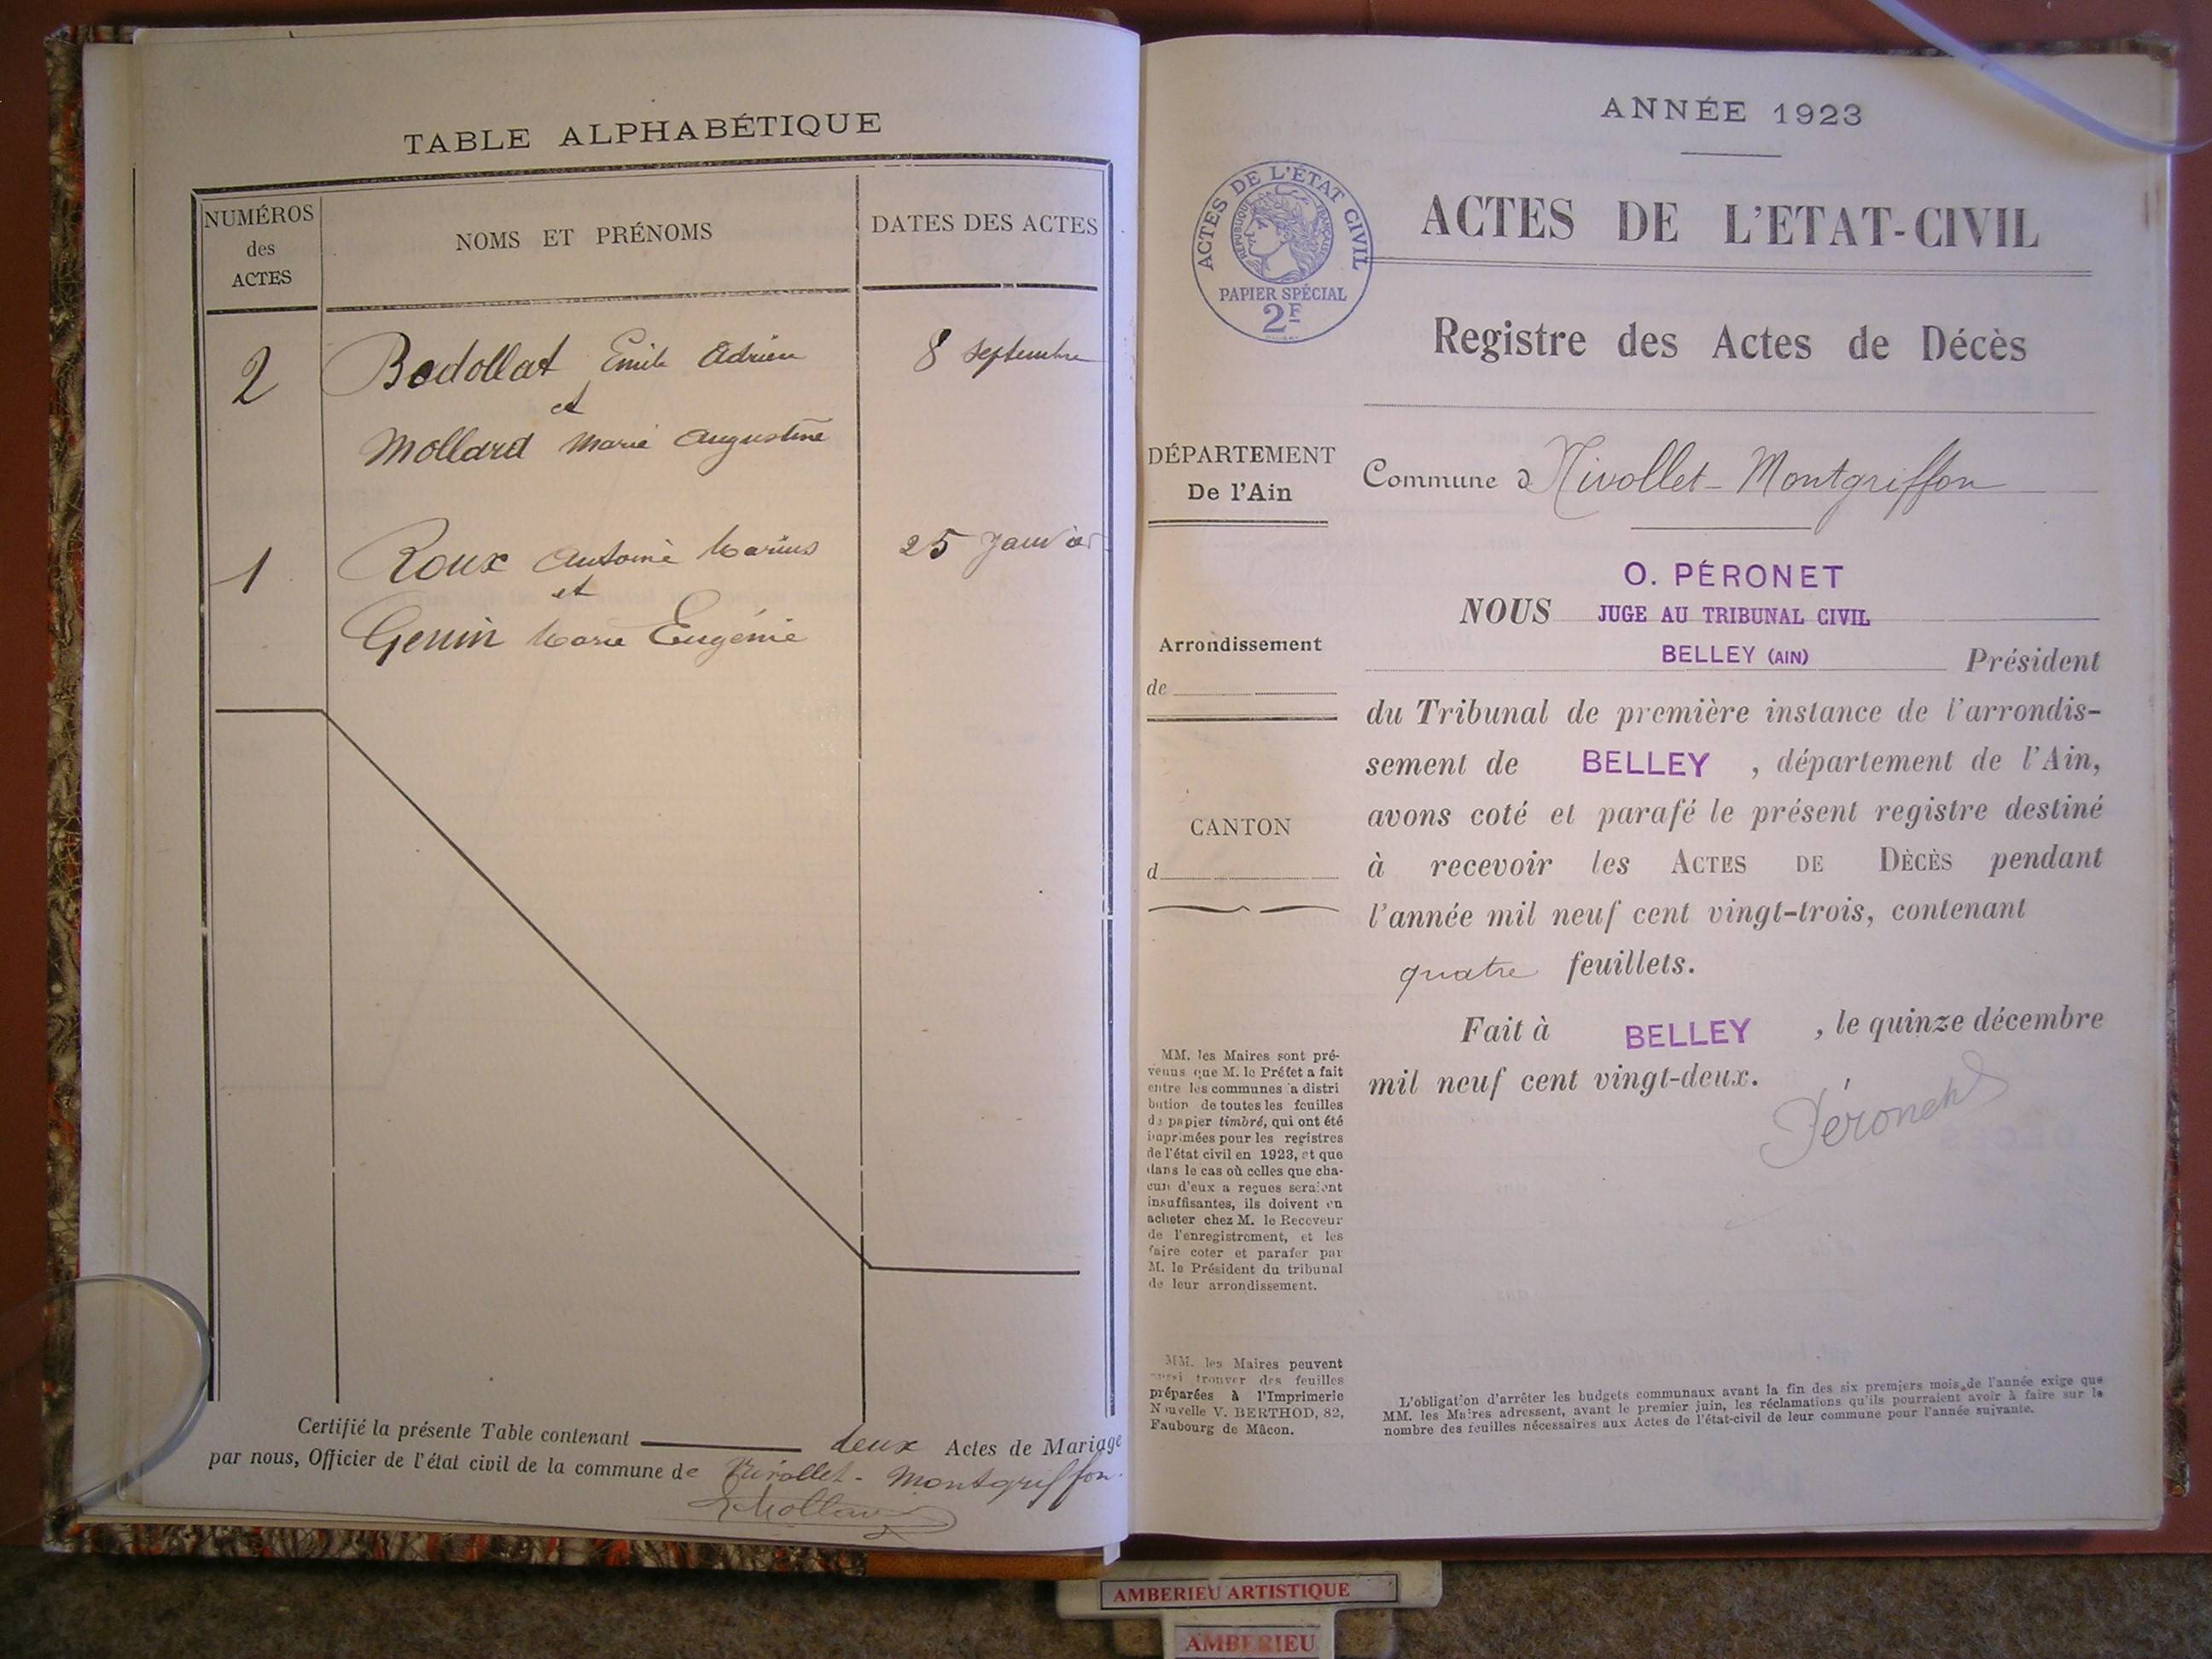 TABLE ALPHABÉTIQUE
NUMÉROS
des
ACTES
NOMS ET PRÉNOMS
DATES DES ACTES
2 Bodollat Emile Adrien 8 septembre
et
Mollard Marie Augustine
1 Roux Antoine Marius 25 Janvier
et
Genin Marie Eugénie
Certifié la présente Table contenant deux Actes de Mariage
par nous, Officier de l'état civil de la commune de Nivollet-Montgriffon.
ANNÉE 1923
ACTES DE L'ÉTAT CIVIL
RÉPUBLIQUE FRANÇAISE
PAPIER SPÉCIAL
2F
ACTES DE L'ETAT-CIVIL
Registre des Actes de Décès
DÉPARTEMENT
De l'Ain
Arrondissement
de
CANTON
d
MM. les Maires sont pré-
venus que M. le Préfet a fait
entre les communes a distri
bution de toutes les feuilles
de papier timbré, qui ont été
imprimées pour les registres
de l'état civil en 1923, et que
dans le cas où celles que cha-
cun d'eux a reçues seraient
insuffisantes, ils doivent en
acheter chez M. le Receveur
de l'enregistrement, et les
faire coter et parafer par
M. le Président du tribunal
de leur arrondissement.
MM. les Maires peuvent
aussi trouver des feuilles
préparées à l'Imprimerie
Nouvelle V. BERTHOD, 82,
Faubourg de Mâcon.
Commune d Nivollet-Montgriffon
O. PÉRONET
NOUS JUGE AU TRIBUNAL CIVIL
BELLEY (AIN) Président
du Tribunal de première instance de l'arrondis-
sement de BELLEY, département de l'Ain,
avons coté et parafé le présent registre destiné
à recevoir les ACTES DE DÈCÈS pendant
l'année mil neuf cent vingt-trois, contenant
quatre feuillets.
Fait à BELLEY, le quinze décembre
mil neuf cent vingt-deux.
Péronet
L'obligation d'arrêter les budgets communaux avant la fin des six premiers mois de l'année exige que
MM. les Maires adressent, avant le premier juin, les réclamations qu'ils pourraient avoir à faire sur le
nombre des feuilles nécessaires aux Actes de l'état-civil de leur commune pour l'année suivante.
AMBERIEU ARTISTIQUE
AMBERIEU